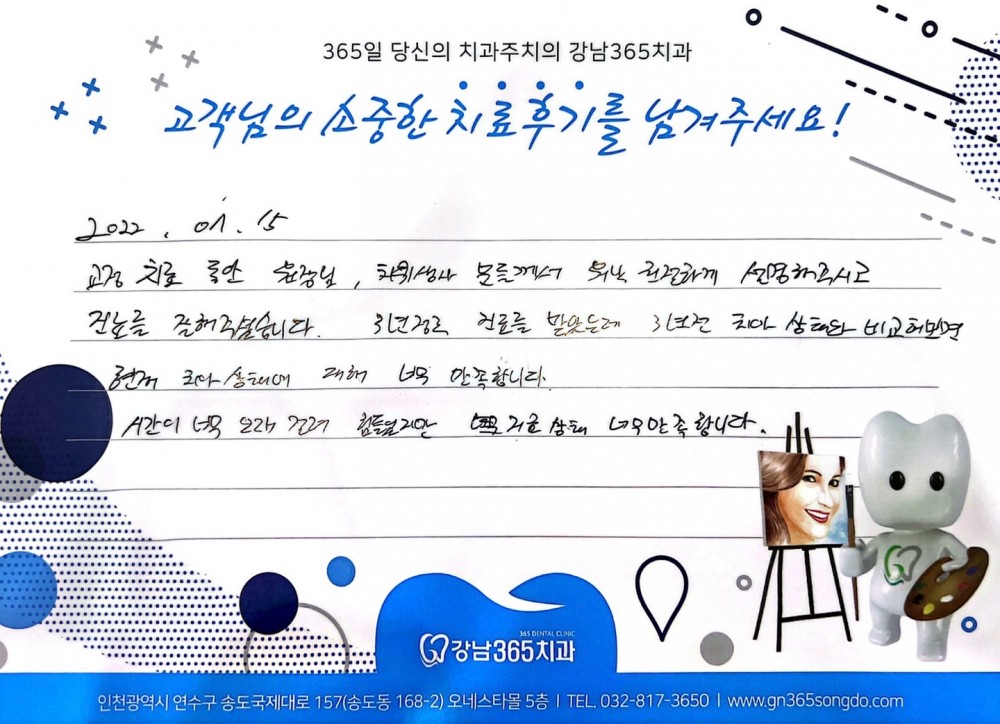 365일 당신의 치과주치의 강남365치과
고객님의 소중한 치료후기를 남겨주세요!
2022. 01. 15
교정 치료 동안 원장님, 치위생사 분들께서 친절하게 설명해주시고
진료를 잘해주셨습니다. 3년정도 진료를 받았는데 3년전 치아 상태와 비교해보면
현재 치아 상태에 대해 너무 만족합니다.
시간이 너무 오래 걸려 힘들었지만 상태 너무 만족합니다.
365 DENTAL CLINIC
강남365치과
인천광역시 연수구 송도국제대로 157(송도동 168-2) 오네스타몰 5층 | TEL. 032-817-3650 | www.gn365songdo.com